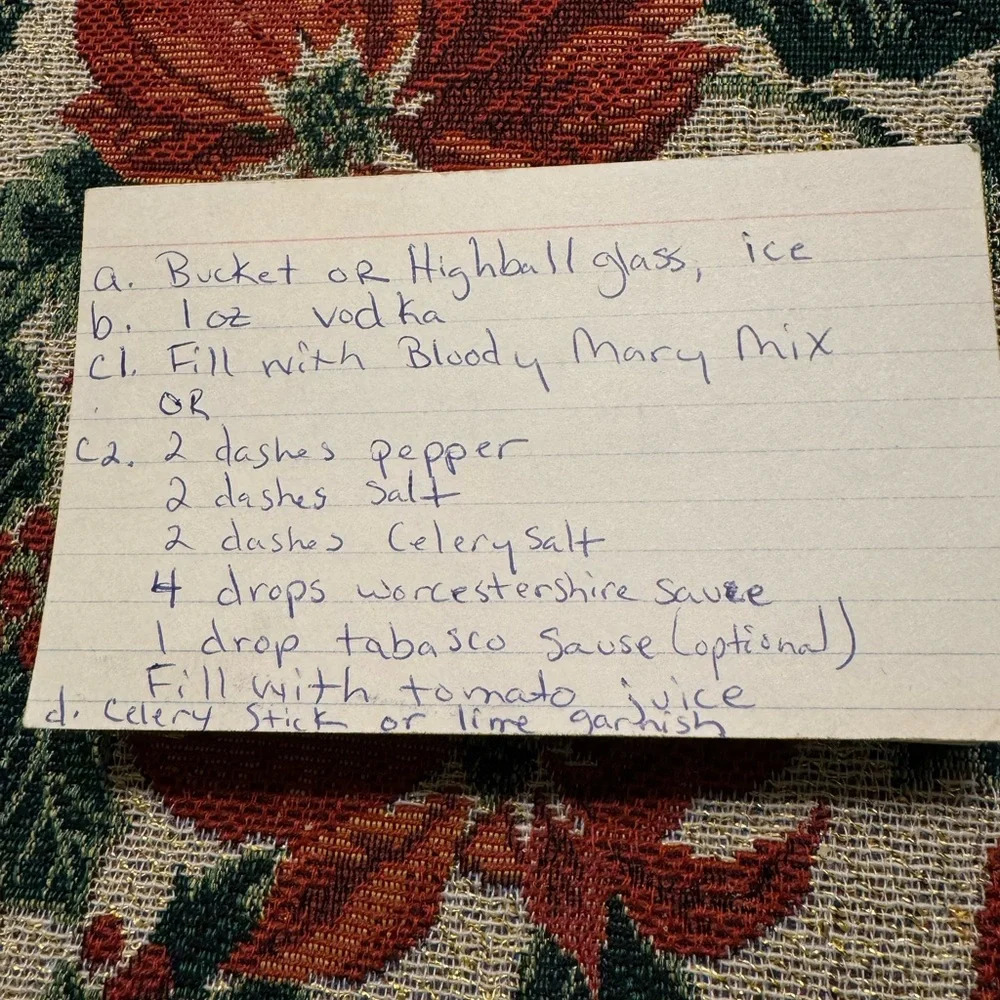 a. Bucket OR Highball glass, ice
b. 1 oz vodka
c1. Fill with Bloody Mary Mix
OR
c2. 2 dashes pepper
2 dashes Salt
2 dashes Celery Salt
4 drops worcestershire sauce
1 drop tabasco Sause (optional)
Fill with tomato juice
d. Celery Stick or lime garnish